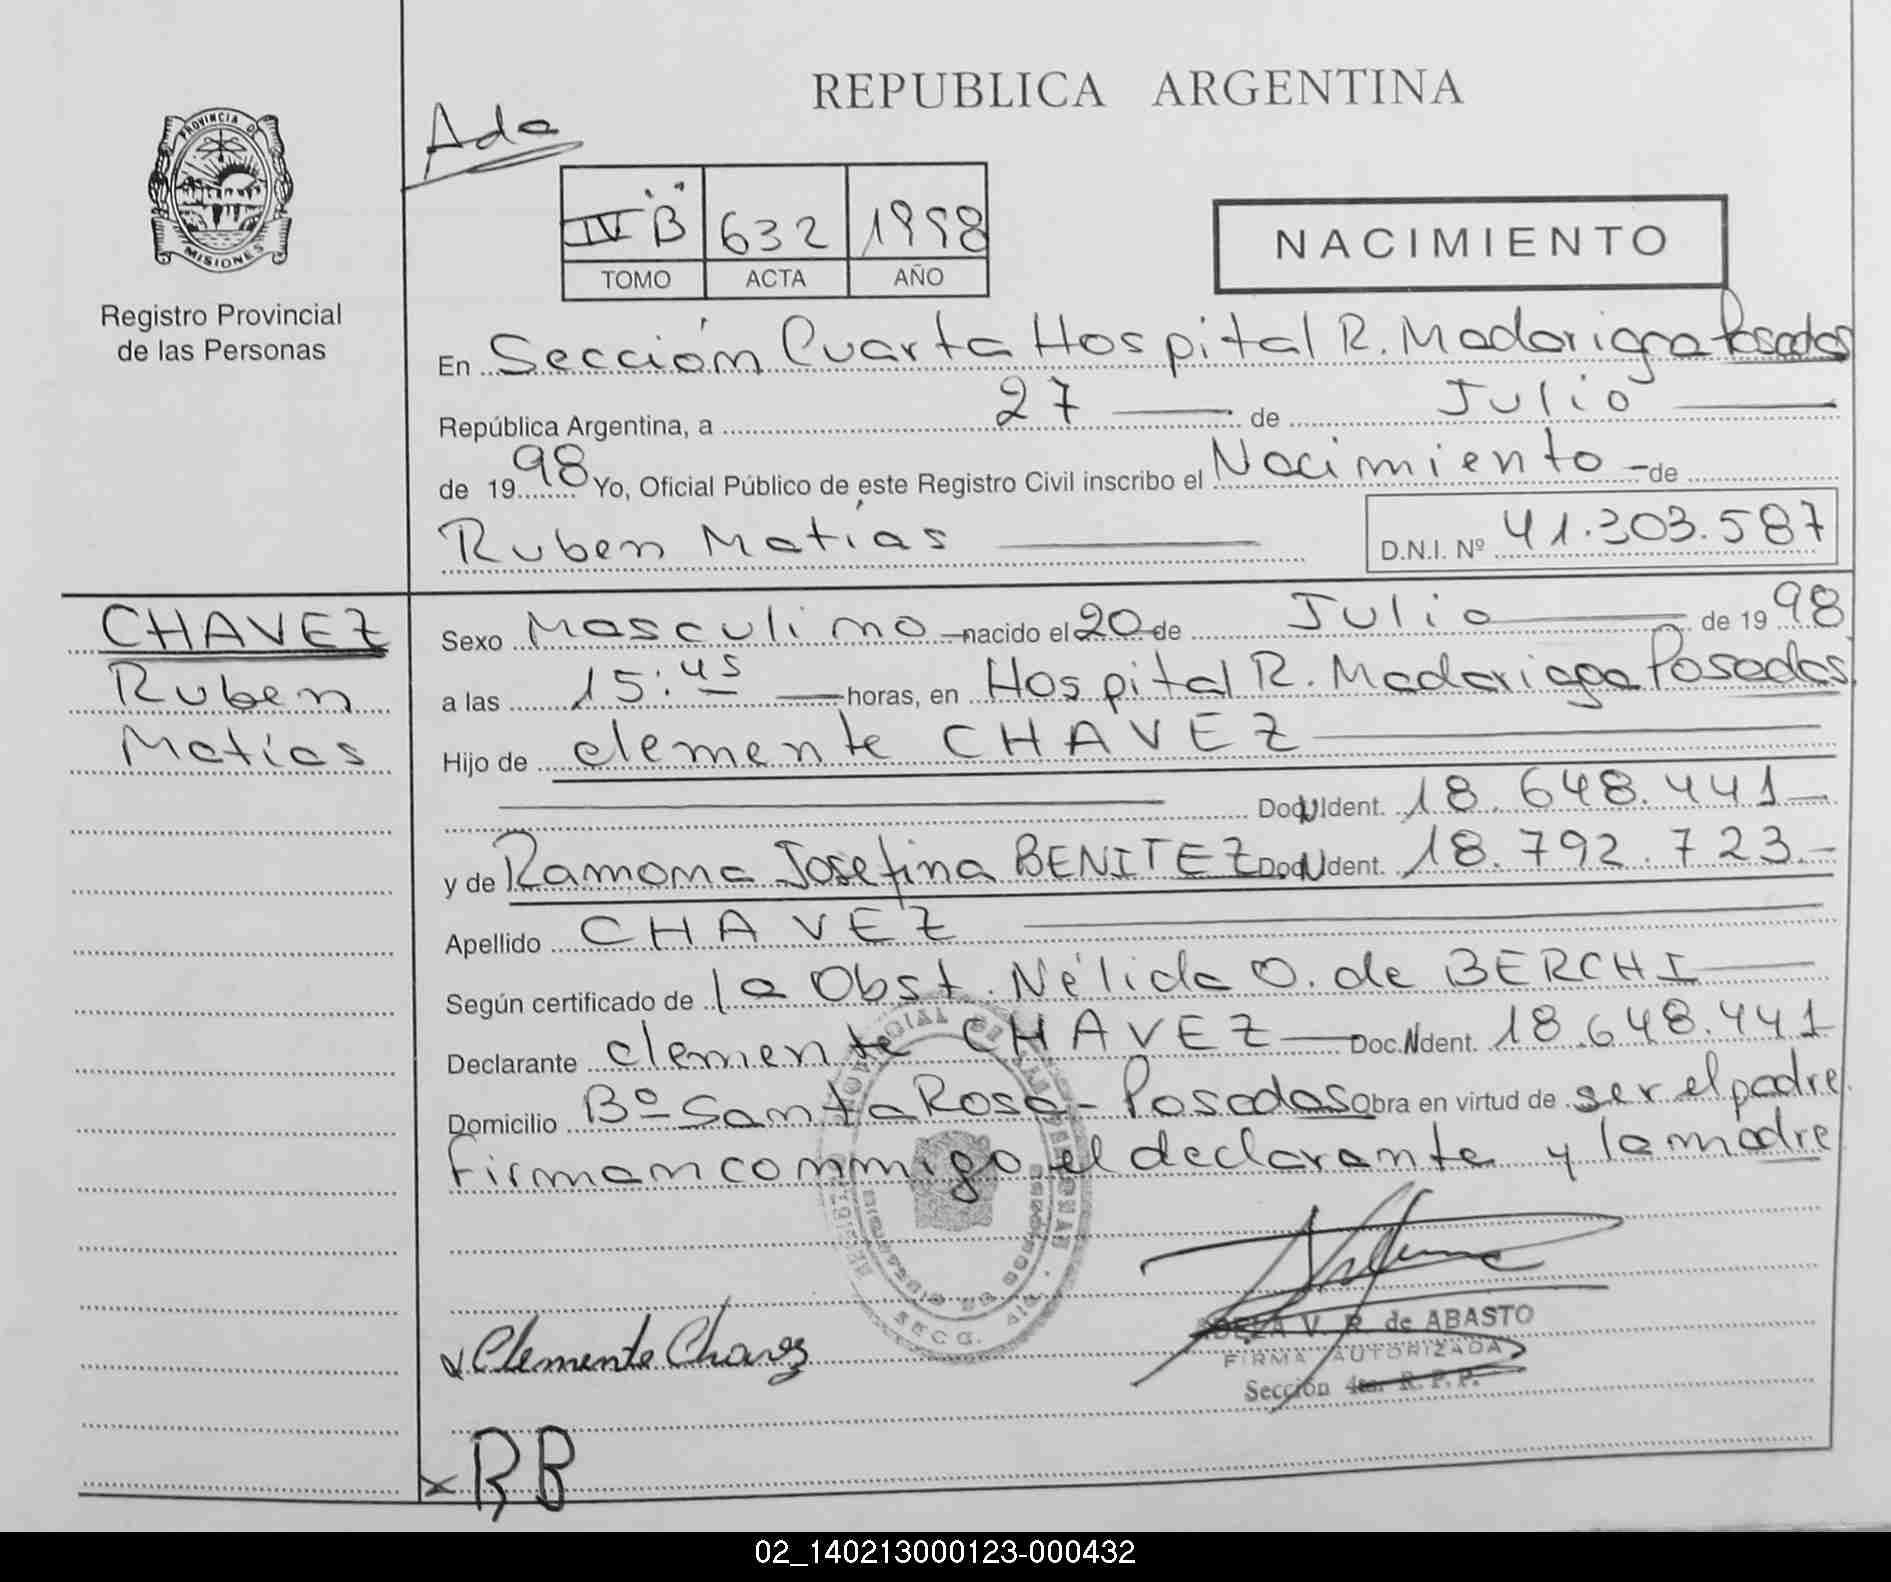 REPUBLICA ARGENTINA
Ada
PROVINCIA DE
MISIONES
Registro Provincial
de las Personas
IV "B" 632 1998
TOMO ACTA AÑO
NACIMIENTO
En Sección Cuarta Hospital R. Madariaga Posadas
República Argentina, a 27 de Julio
de 1998 Yo, Oficial Público de este Registro Civil inscribo el Nacimiento de
Ruben Matías D.N.I. Nº 41.303.587
CHAVEZ
Ruben
Matías
Sexo Masculino nacido el 20 de Julio de 1998
a las 15:45 horas, en Hospital R. Madariaga Posadas
Hijo de Clemente CHAVEZ
Doc. Ident. 18.648.441
y de Ramona Josefina BENITEZ Doc. Ident. 18.792.723.-
Apellido CHAVEZ
Según certificado de la Obst. Nélida O. de BERCHI
Declarante Clemente CHAVEZ Doc. Ident. 18.648.441
Domicilio Bº Santa Rosa - Posadas Obra en virtud de ser el padre.
firman conmigo el declarante y la madre
Clemente Chavez
V. R. de ABASTO
FIRMA AUTORIZADA
Sección 4ta. R. P. P.
x RB
02_140213000123-000432